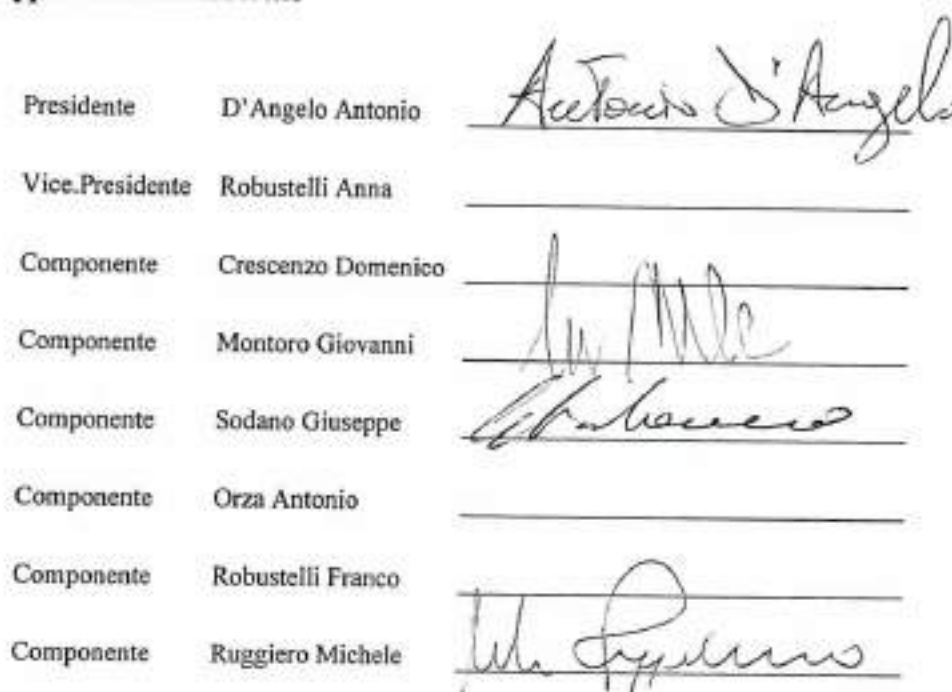 Presidente D'Angelo Antonio Antonio D'Angelo
Vice.Presidente Robustelli Anna
Componente Crescenzo Domenico
Componente Montoro Giovanni
Componente Sodano Giuseppe
Componente Orza Antonio
Componente Robustelli Franco
Componente Ruggiero Michele